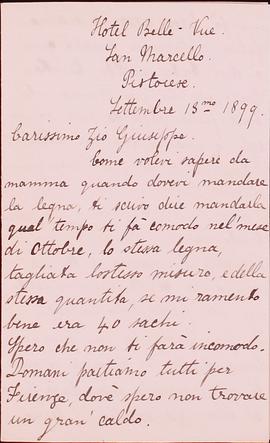 Hotel Belle-Vue.
San Marcello.
Pistoiese.
Settembre 18mo 1899.
Carissimo Zio Giuseppe.
Come volevi sapere da
mamma quando dovevi mandare
la legna, ti scrivo di mandarla
qual tempo ti fà comodo nel'mese
di Ottobre, lo stesa legna,
tagliata lostesso misuro, e della
stessa quantita, se mi ramento
bene era 40 sachi.
Spero che non ti farà incomodo.
Domani partiamo tutti per
Firenze, dovè spero non trovare
un gran' caldo.